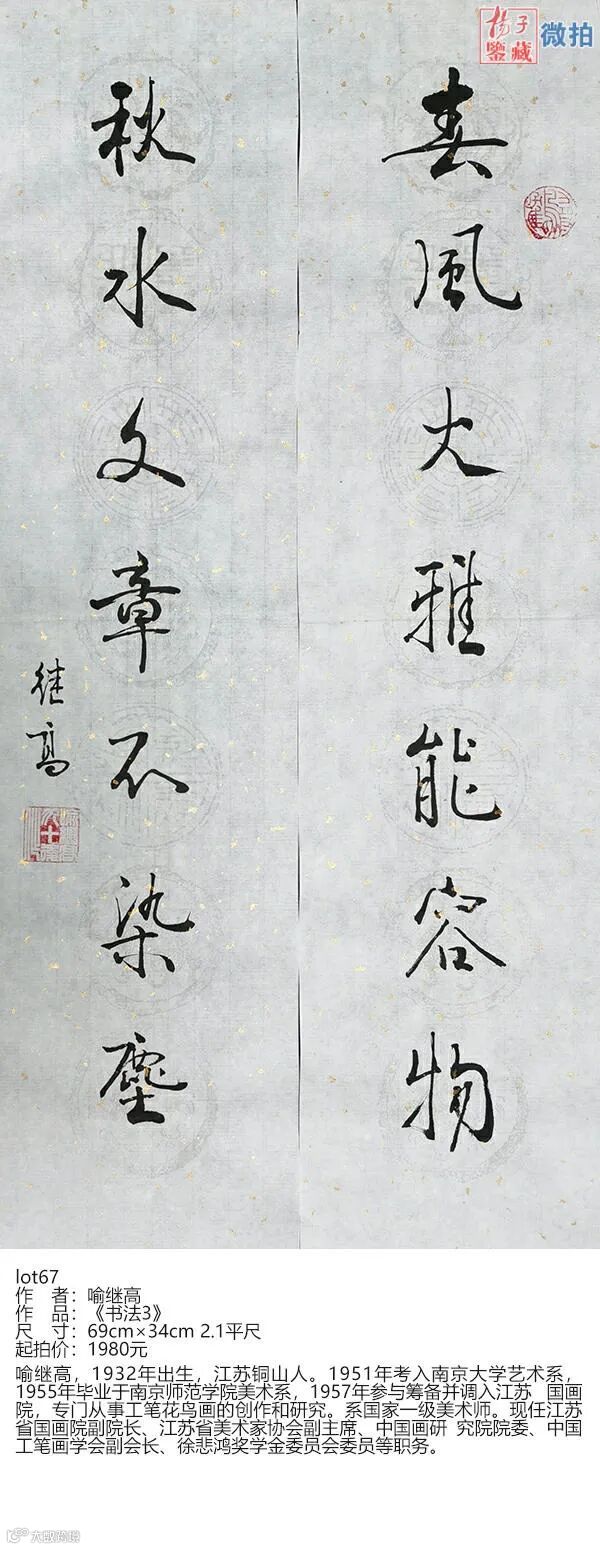 揚子
鑒藏
微拍
春風大雅能容物
秋水文章不染塵
继高
lot67
作 者：喻继高
作 品：《书法3》
尺 寸：69cm×34cm 2.1平尺
起拍价：1980元
喻继高，1932年出生，江苏铜山人。1951年考入南京大学艺术系，
1955年毕业于南京师范学院美术系，1957年参与筹备并调入江苏 国画
院，专门从事工笔花鸟画的创作和研究。系国家一级美术师。现任江苏
省国画院副院长、江苏省美术家协会副主席、中国画研 究院院委、中国
工笔画学会副会长、徐悲鸿奖学金委员会委员等职务。